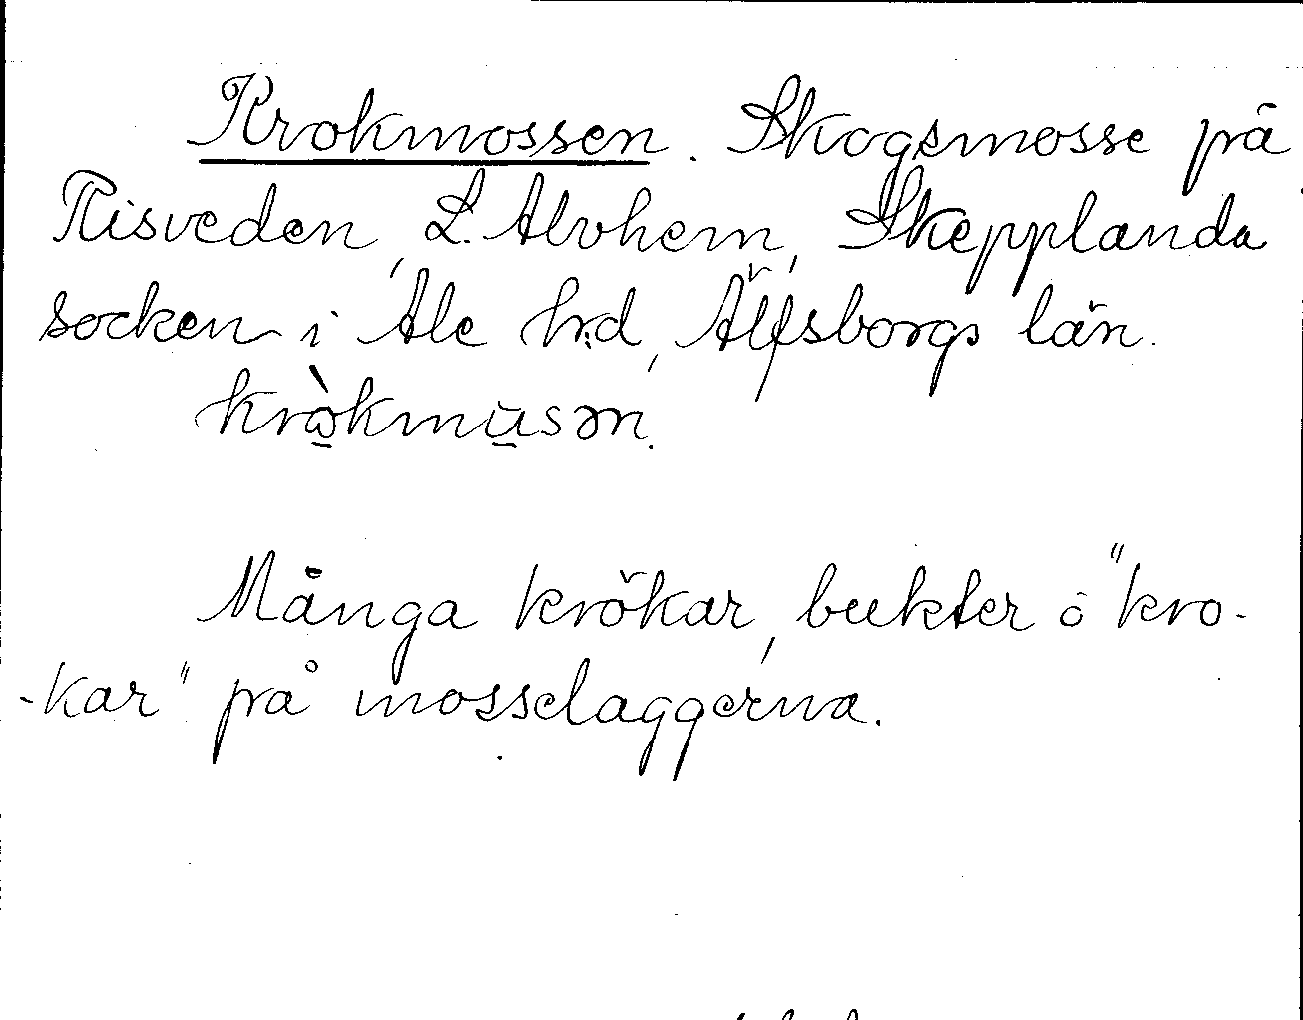 Krokmossen. Skogsmosse på
Risveden, L. Alvhem, Skepplanda
socken i Ale hrd, Älfsborgs län.
kròkmusən.
Många krökar, bukter o "kro-
-kar" på mosselaggerna.